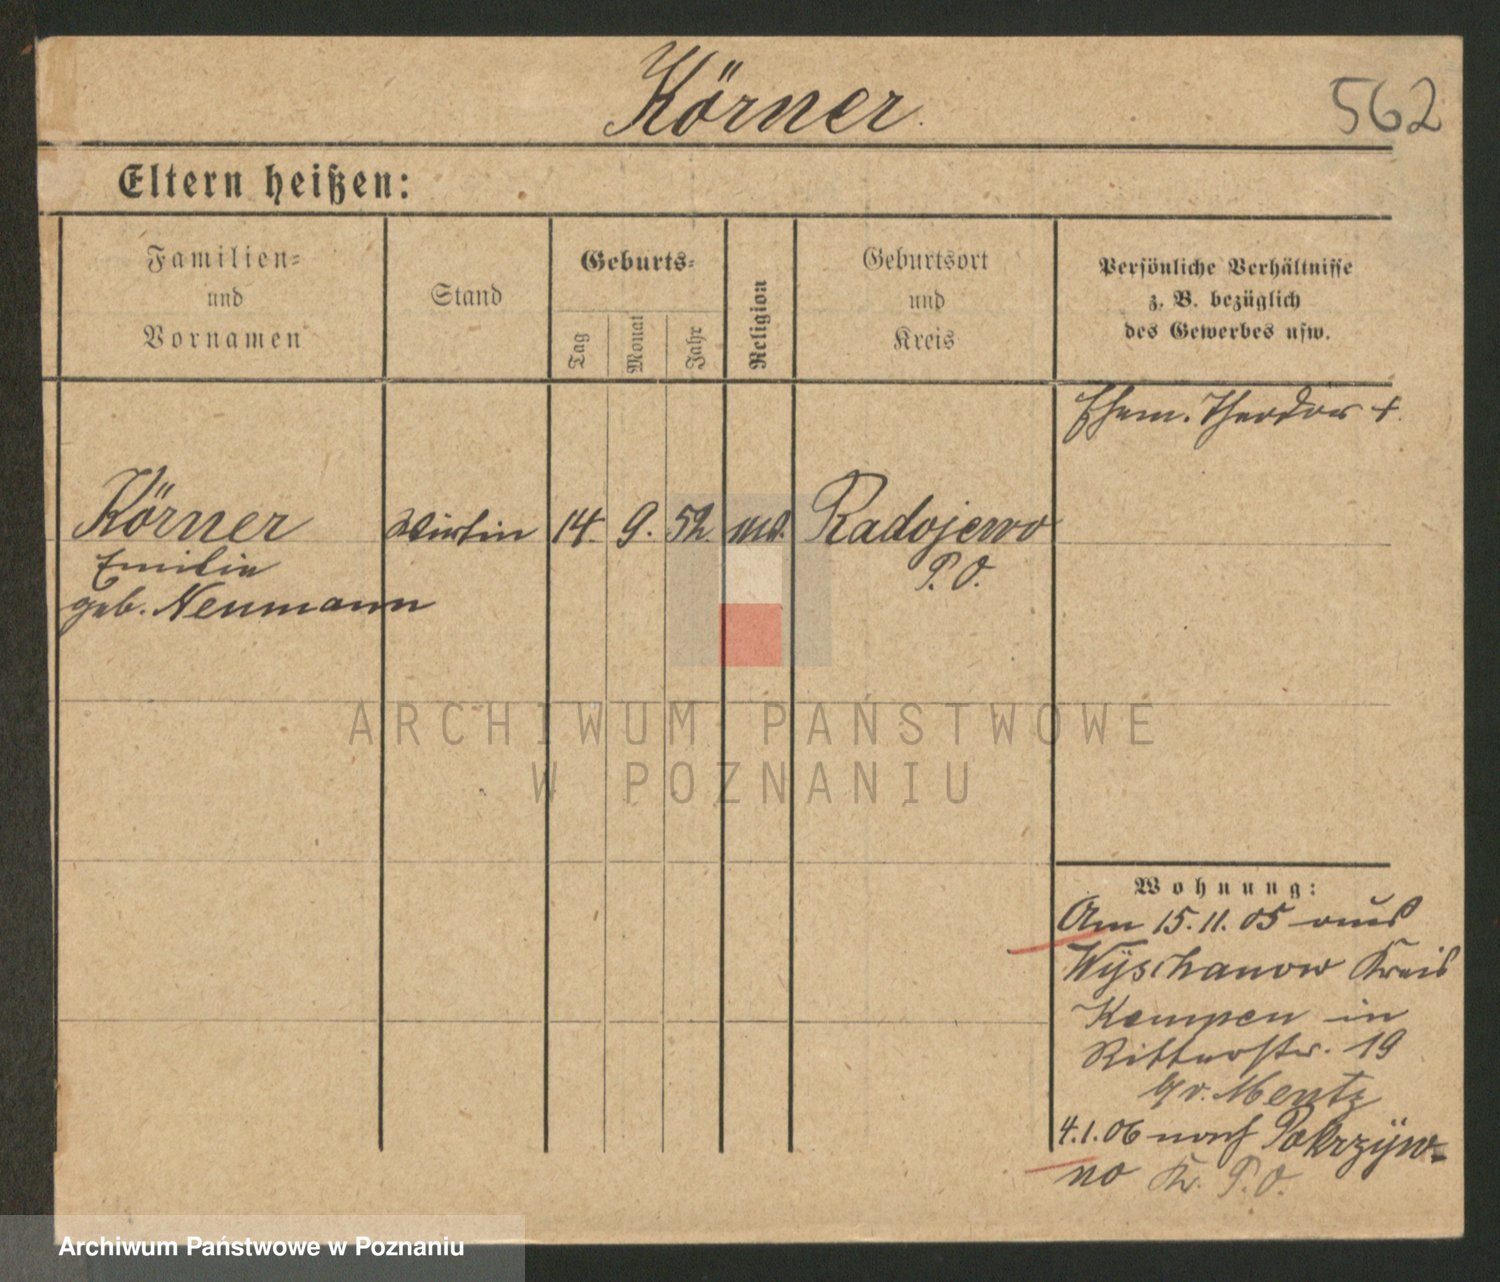 Körner.
562
Eltern heißen:
Familien=
und
Vornamen
Stand
Geburts=
Tag
Monat
Jahr
Religion
Geburtsort
und
Kreis
Persönliche Verhältnisse
z. B. bezüglich
des Gewerbes usw.
Ehem. Theodor +.
Körner Wirtin 14. 9. 52. Radojewo
Emilie P. O.
geb. Neumann
ARCHIWUM PAŃSTWOWE
W POZNANIU
Wohnung:
Am 15.11.05 aus
Wyschanow Kreis
Kempen in
Ritterstr. 19
Mentz
4.1.06 nach Pokrzyw=
no Kr. P. O.
Archiwum Państwowe w Poznaniu